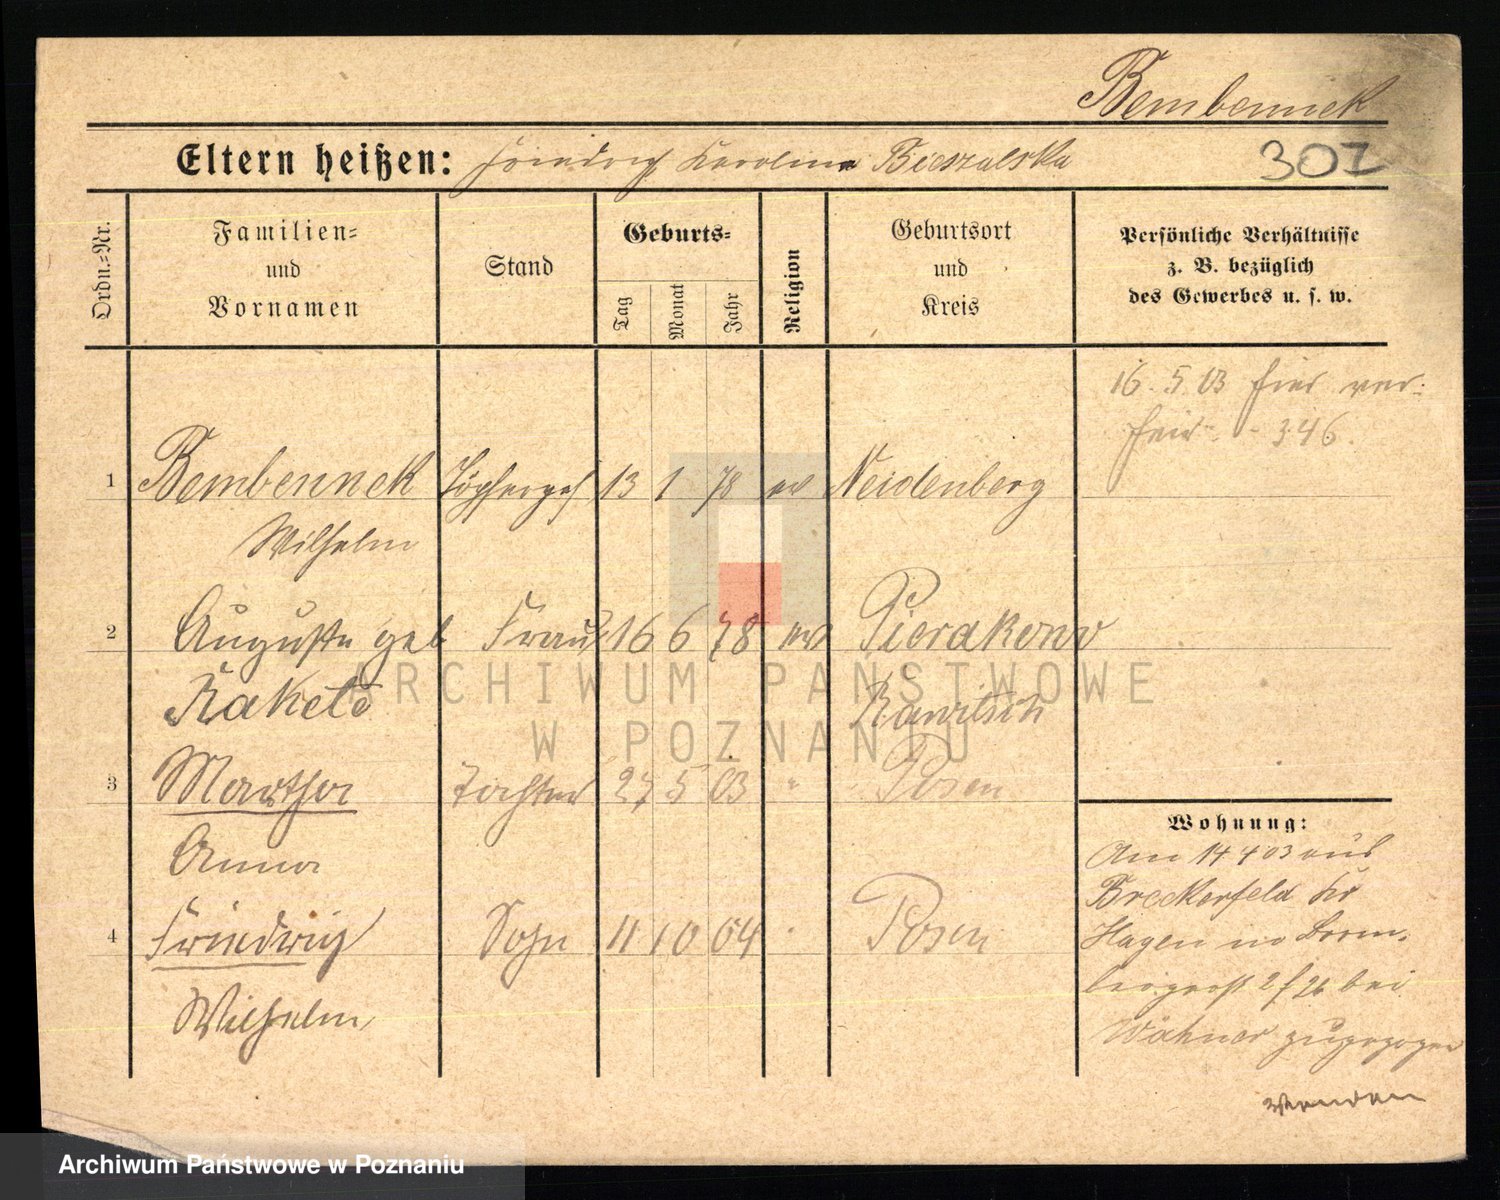 Bembennek
Eltern heißen: Friedrich Karoline Bieszalska 307
Ordn.=Nr.
Familien= und Vornamen
Stand
Geburts=
Tag Monat Jahr
Religion
Geburtsort und Kreis
Persönliche Verhältnisse
z. B. bezüglich
des Gewerbes u. s. w.
16. 5 03 hier ver:
heir. 346.
1 Bembennek Töpferges 13 1 78 ev Neidenberg
Wilhelm
2 Auguste geb Frau 16 6 78 ev Pierakowo
Rakete Rawitsch
3 Martha Tochter 27 5 03 " Posen
Anna
4 Friedrich Sohn 11 10 04 " Posen
Wilhelm
Wohnung:
Am 14 4 03 aus
Breckerfeld Kr
Hagen
2/26 bei
Wähner zugezogen
wenden
ARCHIWUM PAŃSTWOWE
W POZNANIU
Archiwum Państwowe w Poznaniu